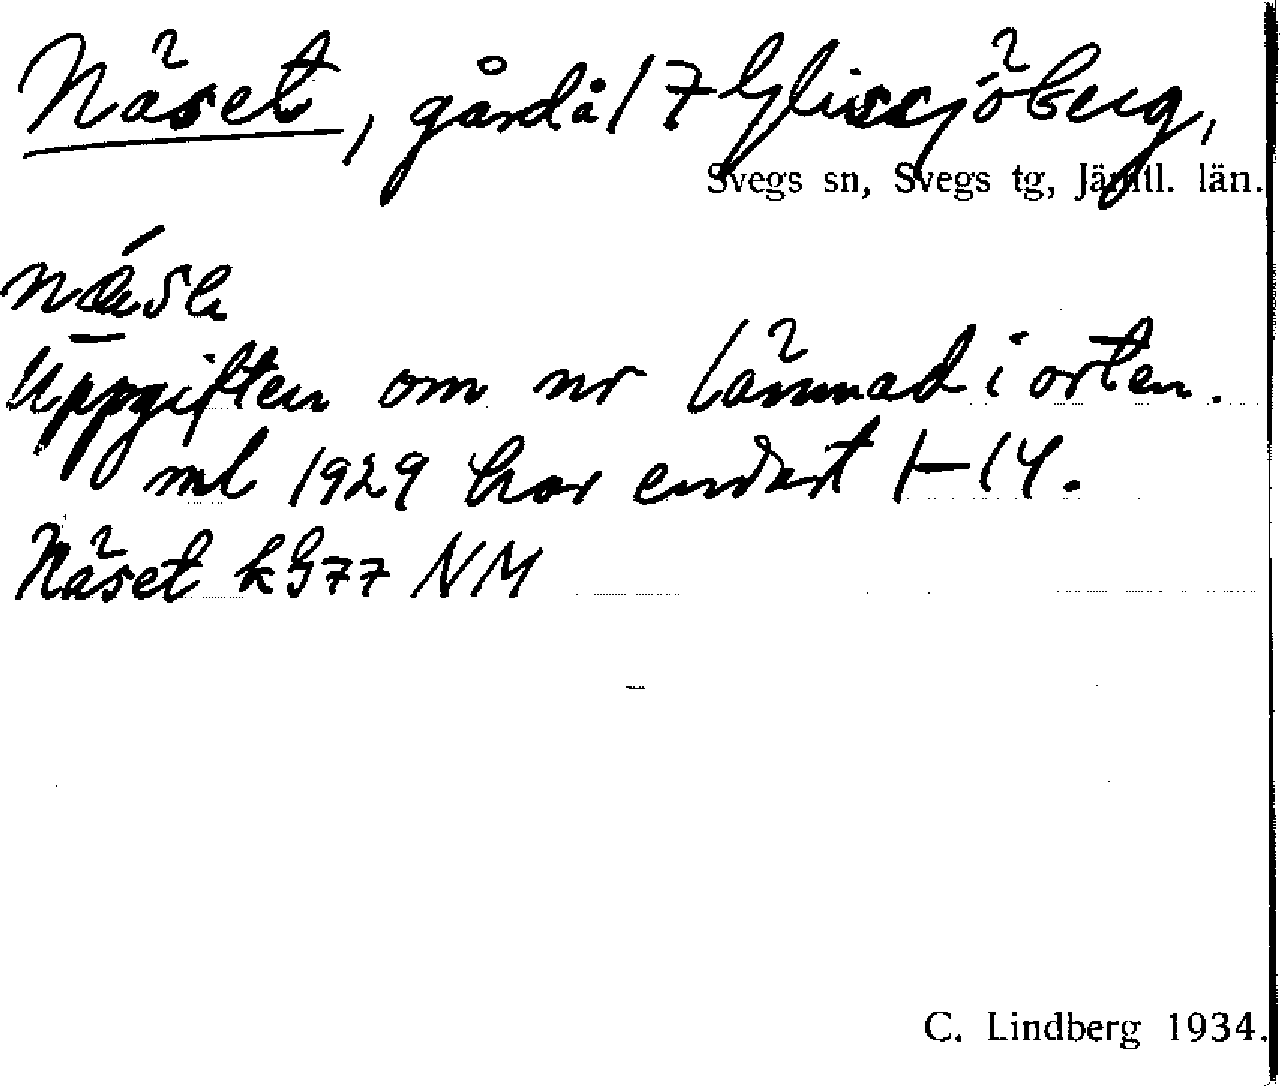 Näset, gård å 17 Glissjöberg,
Svegs sn, Svegs tg, Jämtl. län.
Uppgiften om nr lämnad i orten.
ml 1929 har endast 1–14.
Näset kG77 NM
C. Lindberg 1934.